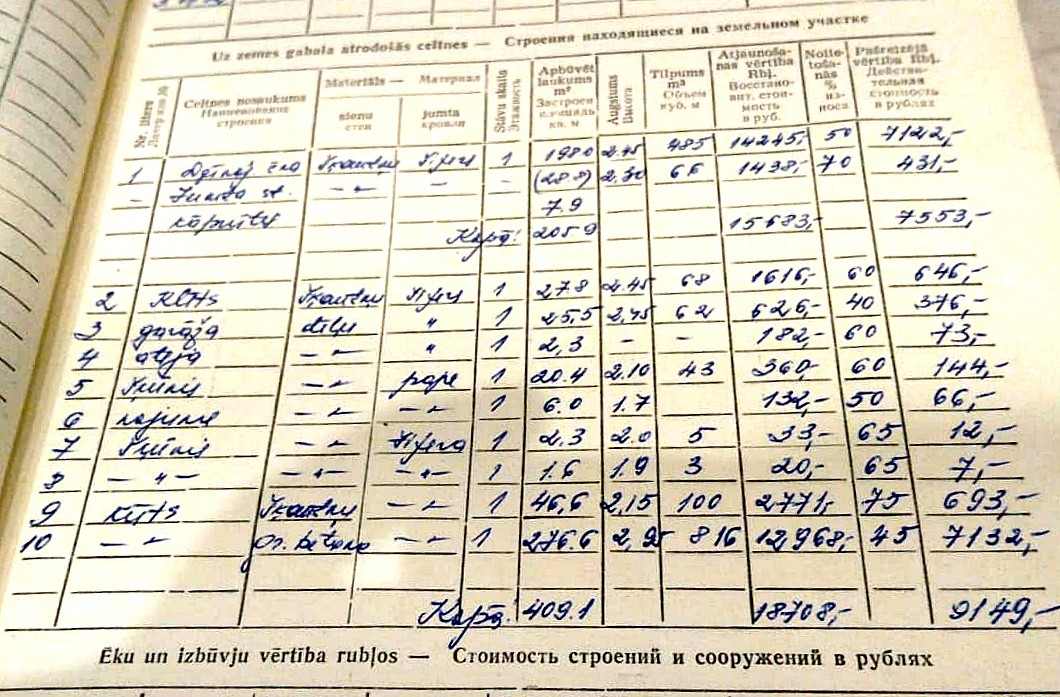 Uz zemes gabala atrodošās celtnes — Строения находящиеся на земельном участке
Nr. litera Литера или №
Celtnes nosaukums Наименование строения
Materiāls — Материал
sienu стен
jumta кровли
Stāvu skaits Этажность
Apbūvēt. laukums m² Застроен. площадь кв. м
Augstums Высота
Tilpums m³ Объем куб. м
Atjaunošanas vērtība Rbļ. Восстановит. стоимость в руб.
Nolietošanās % износа
Pašreizējā vērtība Rbļ. Действительная стоимость в рублях
1 Dzīvoj. ēka Ķieģeļu Šīfera 1 198.0 2.45 485 14245,- 50 7122,-
- Jumta st. -"- - - (28.8) 2.30 66 1438,- 70 431,-
kāpnītes 7.9
Kopā: 205.9 15683,- 7553,-
2 Kūts Šīfera 1 27.8 2.45 68 1616,- 60 646,-
3 garāža dēļu " 1 25,5 2,45 62 626,- 40 376,-
4 ateja -"- " 1 2,3 - - 182,- 60 73,-
5 Šķūnis -"- pape 1 20.4 2.10 43 360,- 60 144,-
6 nojume -"- -"- 1 6.0 1.7 132,- 50 66,-
7 Šķūnis -"- Šīfera 1 2.3 2.0 5 33,- 65 12,-
8 -"- -"- -"- 1 1.6 1.9 3 20,- 65 7,-
9 Kūts -"- 1 46,6 2,15 100 2771,- 75 693,-
10 -"- -"- 1 276.6 2,95 816 12968,- 45 7132,-
Kopā: 409.1 18708,- 9149,-
Ēku un izbūvju vērtība rubļos — Стоимость строений и сооружений в рублях